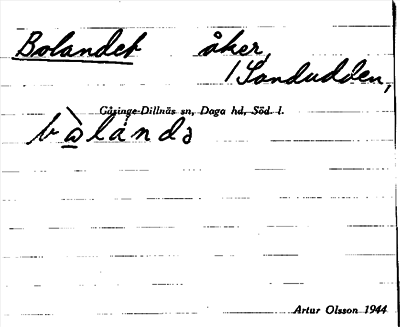 Bolandet åker,
/ Sandudden,
Gåsinge-Dillnäs sn, Daga hd, Söd. l.
Artur Olsson 1944